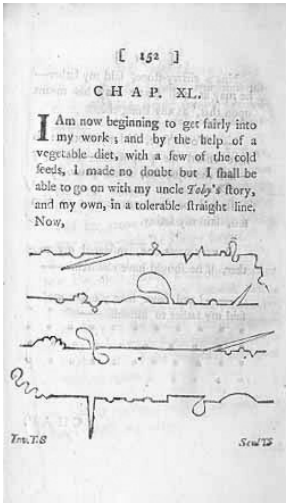 [ 152 ]
CHAP. XL.
I Am now beginning to get fairly into
my work; and by the help of a
vegetable diet, with a few of the cold
ſeeds, I made no doubt but I ſhall be
able to go on with my uncle Toby's ſtory,
and my own, in a tolerable ſtraight line.
Now,
Inv. T.S
Scul T.S